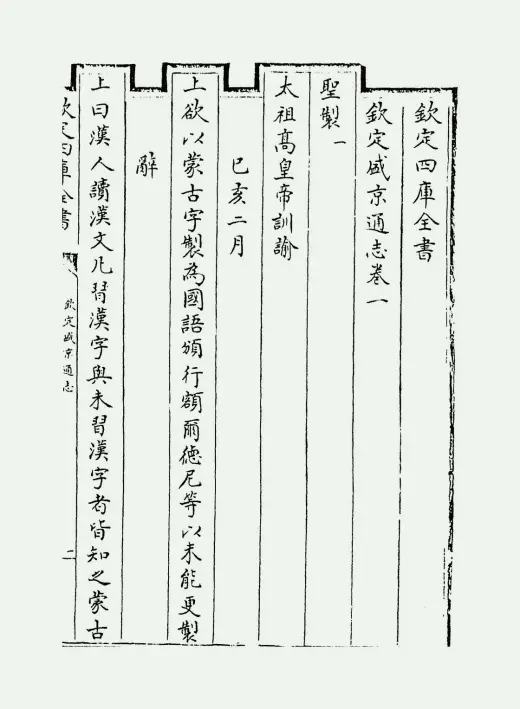 欽定四庫全書
欽定盛京通志卷一
聖製一
太祖高皇帝訓諭
己亥二月
上欲以蒙古字製為國語頒行額爾德尼等以未能更製
辭
上曰漢人讀漢文凡習漢字與未習漢字者皆知之蒙古
欽定四庫全書
欽定盛京通志
二